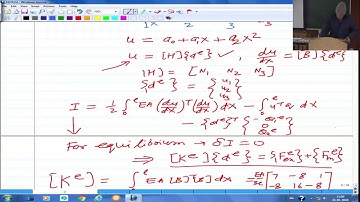 1x 2 3 3
u = a₀ + a₁x + a₂x²
u = [H]{dᵉ}, du/dx = [B]{dᵉ}
[H] = [N₁ N₂ N₃]
{dᵉ} = {u₁ u₂ u₃}
I = 1/2 ∫₀ˡ EA (du/dx)ᵀ(du/dx) dx - ∫₀ˡ uᵀq dx
- {dᵉ}ᵀ {-Q₁ᵉ 0 Q₂ᵉ}
For equilibrium → δI = 0
⇒ [Kᵉ]{dᵉ} =
[Kᵉ] = ∫₀ˡ EA [B][B] dx = EA/3l [7 -8 1
-8 16 -8